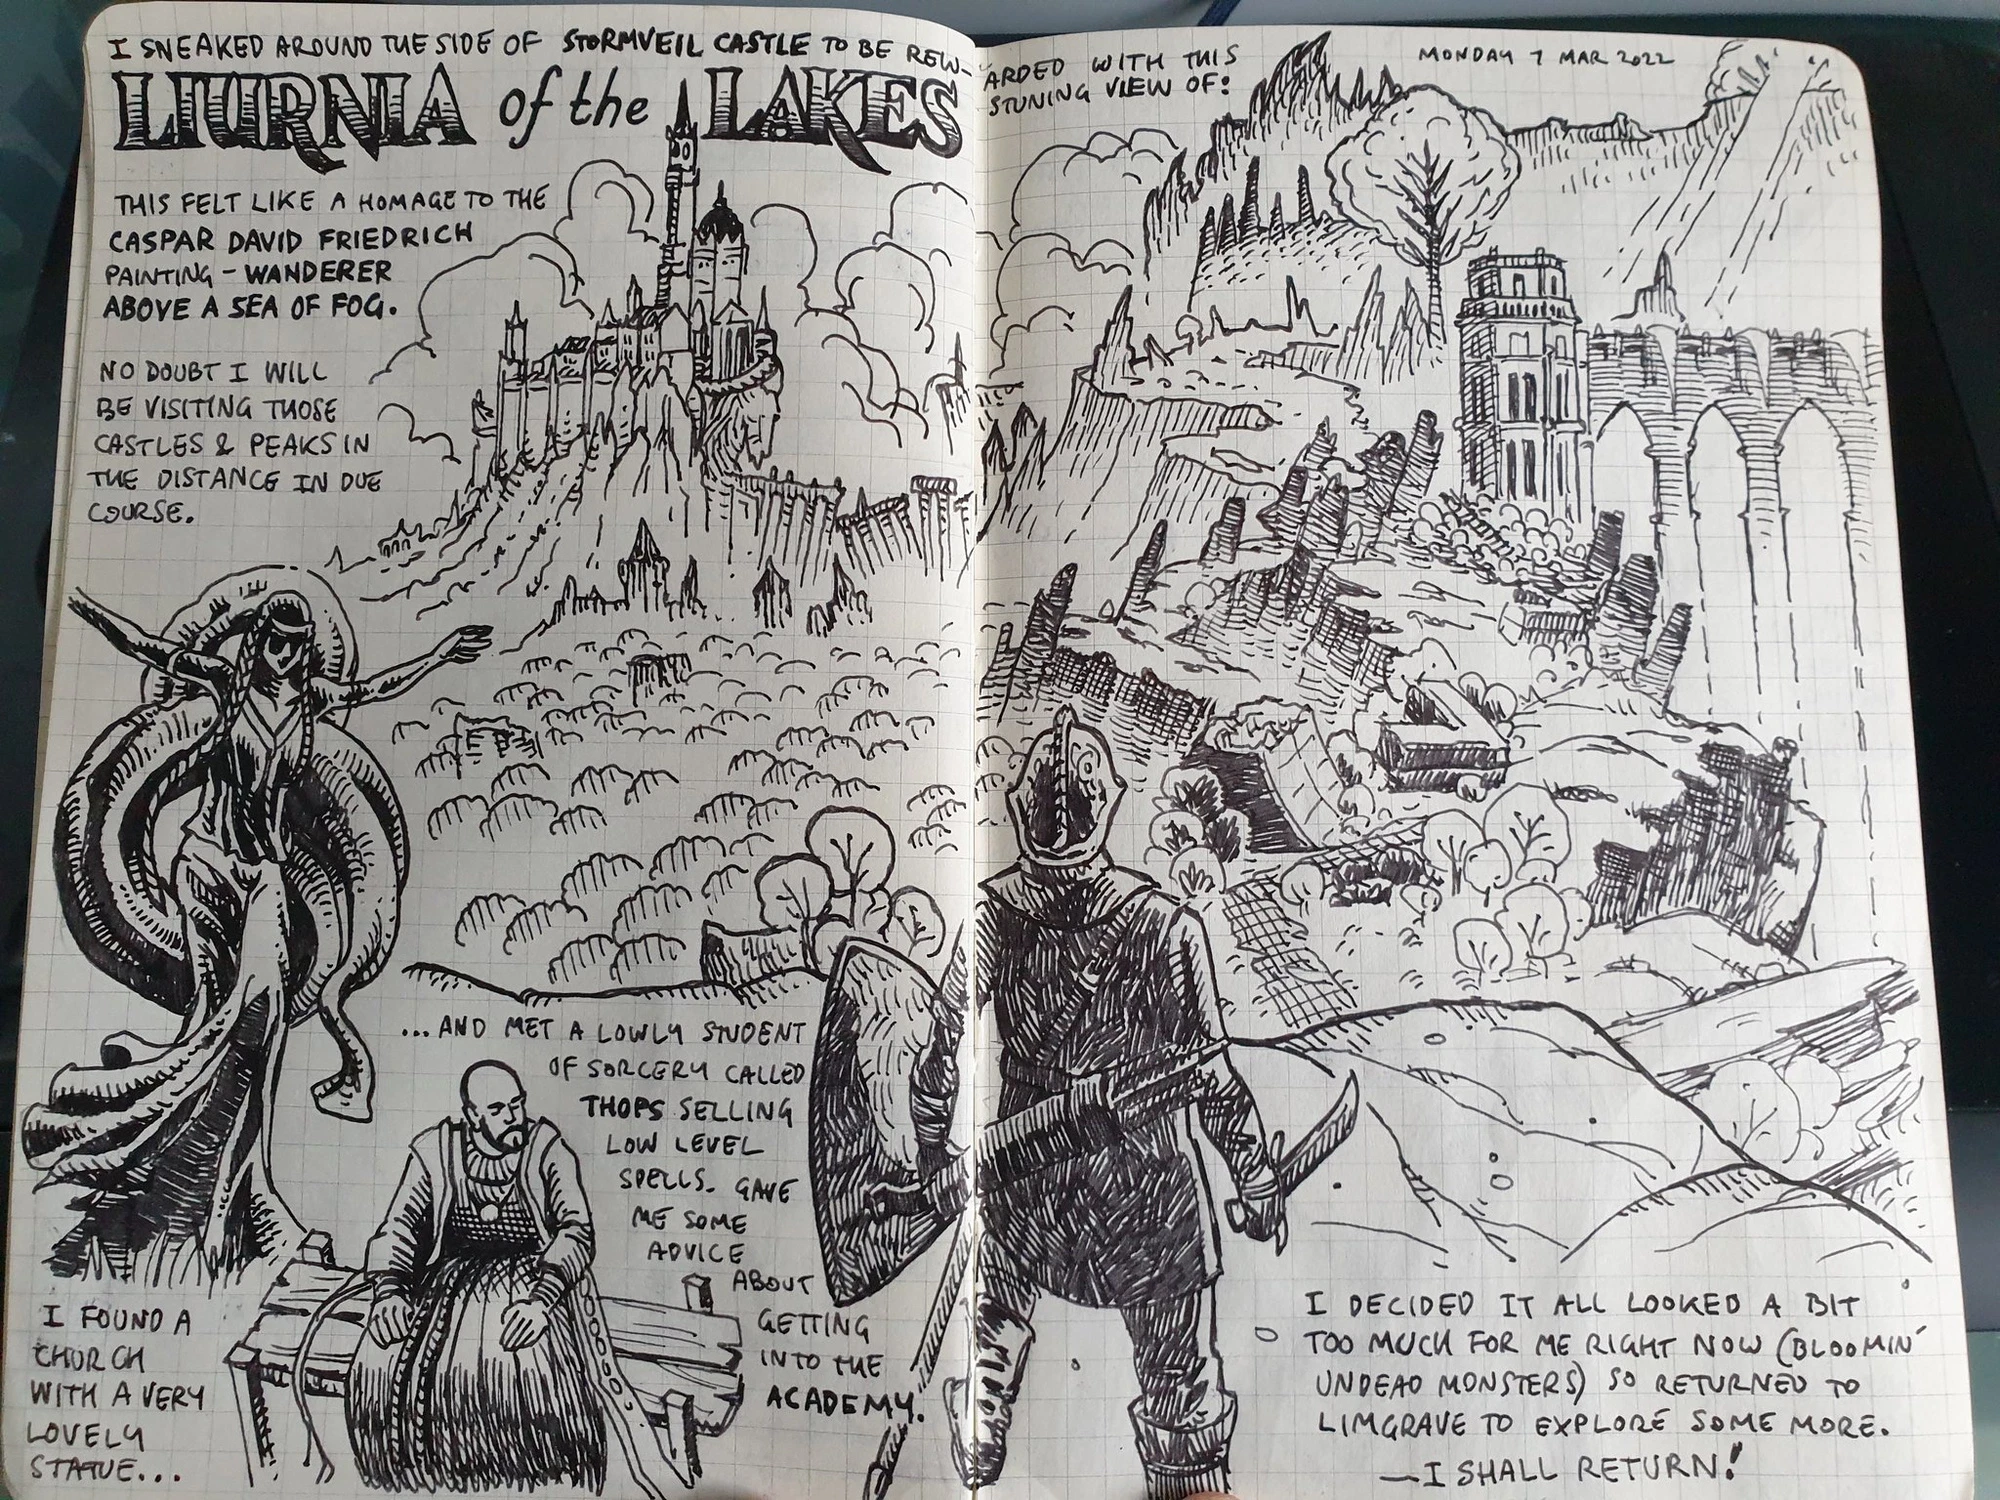 I SNEAKED AROUND THE SIDE OF STORMVEIL CASTLE TO BE REW-
ARDED WITH THIS
STUNING VIEW OF:
MONDAY 7 MAR 2022
LIURNIA of the LAKES
THIS FELT LIKE A HOMAGE TO THE
CASPAR DAVID FRIEDRICH
PAINTING - WANDERER
ABOVE A SEA OF FOG.
NO DOUBT I WILL
BE VISITING THOSE
CASTLES & PEAKS IN
THE DISTANCE IN DUE
COURSE.
I FOUND A
CHURCH
WITH A VERY
LOVELY
STATUE...
...AND MET A LOWLY STUDENT
OF SORCERY CALLED
THOPS SELLING
LOW LEVEL
SPELLS. GAVE
ME SOME
ADVICE
ABOUT
GETTING
INTO THE
ACADEMY.
I DECIDED IT ALL LOOKED A BIT
TOO MUCH FOR ME RIGHT NOW (BLOOMIN'
UNDEAD MONSTERS) SO RETURNED TO
LIMGRAVE TO EXPLORE SOME MORE.
—I SHALL RETURN!